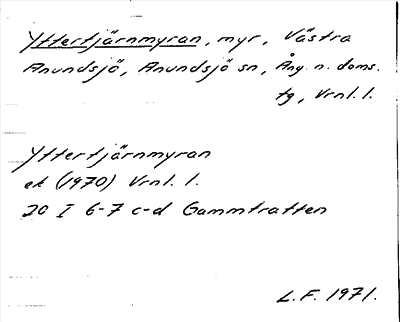 Yttertjärnmyran, myr, Västra
Anundsjö, Anundsjö sn, Ång. n. doms.
tg, Vrnl. l.
Yttertjärnmyran
ek (1970) Vrnl. l.
20 I 6-7 c-d Gammtratten
L.F. 1971.